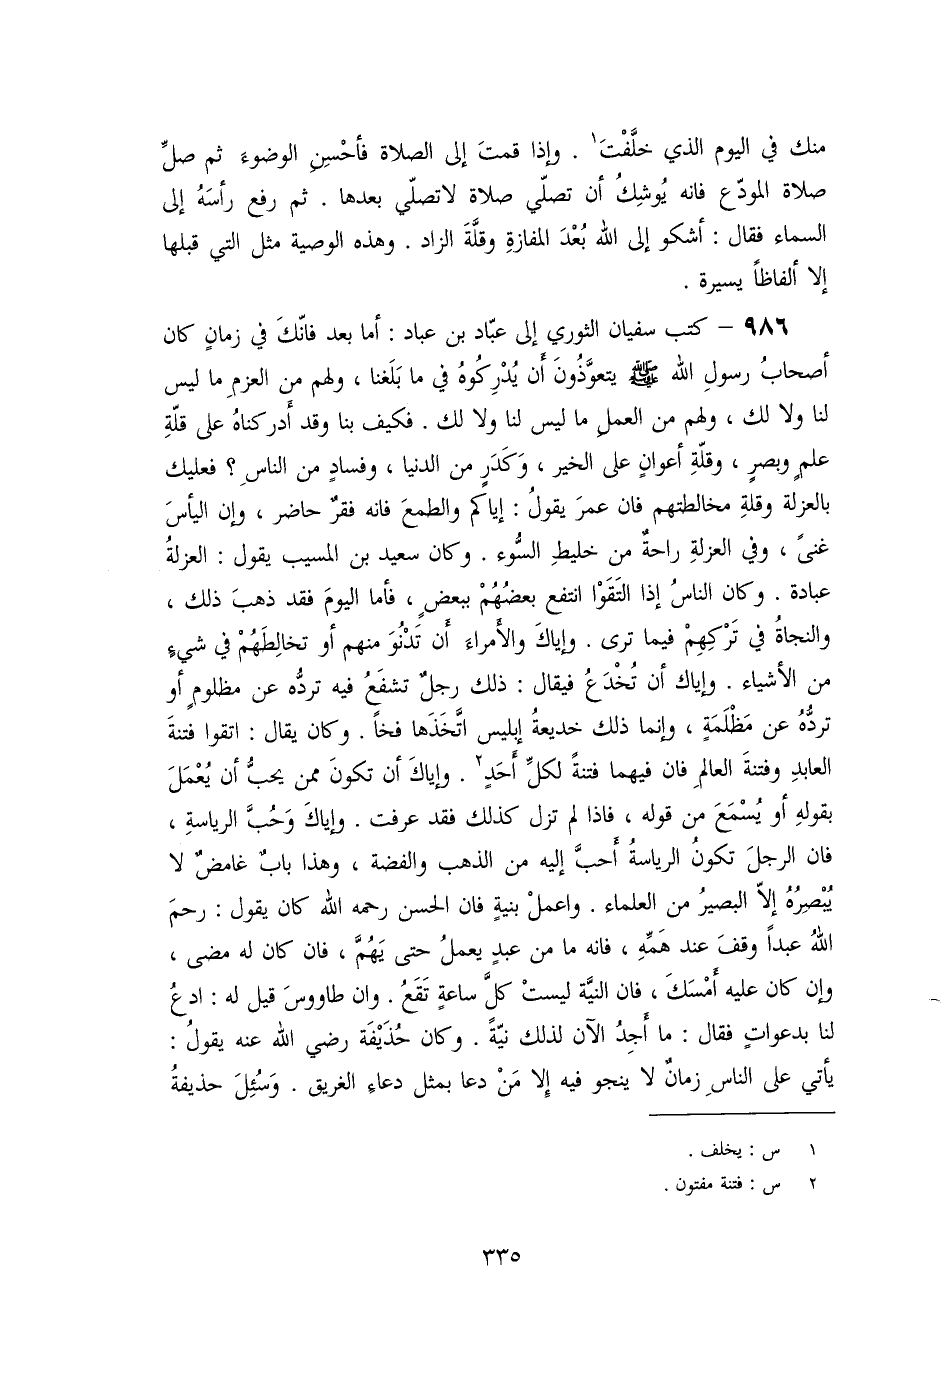 منك في اليوم الذي خلَّفْتَ١ . وإذا قمتَ إلى الصلاة فأحْسِنِ الوضوءَ ثم صلِّ
صلاة المودّع فانه يُوشِكُ أن تصلّي صلاة لاتصلّي بعدها . ثم رفع رأسَهُ إلى
السماء فقال : أشكو إلى الله بُعْدَ المفازةِ وقلَّةَ الزاد . وهذه الوصية مثل التي قبلها
إلا ألفاظاً يسيرة .
٩٨٦ – كتب سفيان الثوري إلى عبّاد بن عباد : أما بعد فانّكَ في زمانٍ كان
أصحابُ رسولِ الله ﷺ يتعوَّذُونَ أَن يُدْرِكُوهُ في ما بَلَغنا ، ولهم من العزمِ ما ليس
لنا ولا لك ، ولهم من العملِ ما ليس لنا ولا لك . فكيف بنا وقد أَدركناهُ على قلّةِ
علمٍ وبصرٍ ، وقلّةِ أعوانٍ على الخير ، وَكَدَرٍ من الدنيا ، وفسادٍ من الناسِ ؟ فعليك
بالعزلة وقلةِ مخالطتهم فان عمرَ يقولُ : إياكم والطمعَ فانه فقرٌ حاضر ، وإن اليأسَ
غنىً ، وفي العزلةِ راحةٌ من خليطِ السُّوء . وكان سعيد بن المسيب يقول : العزلةُ
عبادة . وكان الناسُ إذا التَقَوْا انتفع بعضُهُمْ ببعضٍ ، فأما اليومَ فقد ذهبَ ذلك ،
والنجاةُ في تَرْكِهِمْ فيما ترى . وإياكَ والأمراءَ أَن تَدْنُوَ منهم أو تخالِطَهُمْ في شيءٍ
من الأشياء . وإياك أن تُخْدَعُ فيقال : ذلك رجلٌ تشفَعُ فيه تردُّه عن مظلومٍ أو
تردُّهُ عن مَظْلَمَةٍ ، وإنما ذلك خديعةُ إبليس اتَّخَذَها فخاً . وكان يقال : اتقوا فتنةَ
العابدِ وفتنةَ العالمِ فان فيهما فتنةً لكلِّ أَحَدٍ٢ . وإياكَ أن تكونَ ممن يحبُّ أن يُعْمَلَ
بقولهِ أو يُسْمَعَ من قوله ، فاذا لم تزل كذلك فقد عرفت . وإياكَ وَحُبَّ الرياسةِ ،
فان الرجلَ تكونُ الرياسةُ أَحبَّ إليه من الذهب والفضة ، وهذا بابٌ غامضٌ لا
يُبْصِرُهُ إلاّ البصيرُ من العلماء . واعملْ بنيةٍ فان الحسن رحمه الله كان يقول : رحمَ
اللهُ عبداً وقفَ عند هَمِّهِ ، فانه ما من عبدٍ يعملُ حتى يَهُمَّ ، فان كان له مضى ،
وإن كان عليه أَمْسَكَ ، فان النيَّة ليستْ كلَّ ساعةٍ تَقَعُ . وان طاووسَ قيل له : ادعُ
لنا بدعواتٍ فقال : ما أَجِدُ الآن لذلك نيّةً . وكان حُذَيْفَة رضي الله عنه يقولُ :
يأتي على الناسِ زمانٌ لا ينجو فيه إِلا مَنْ دعا بمثل دعاءِ الغريق . وَسُئِلَ حذيفةُ
١ س : يخلف .
٢ س : فتنة مفتون .
٣٣٥